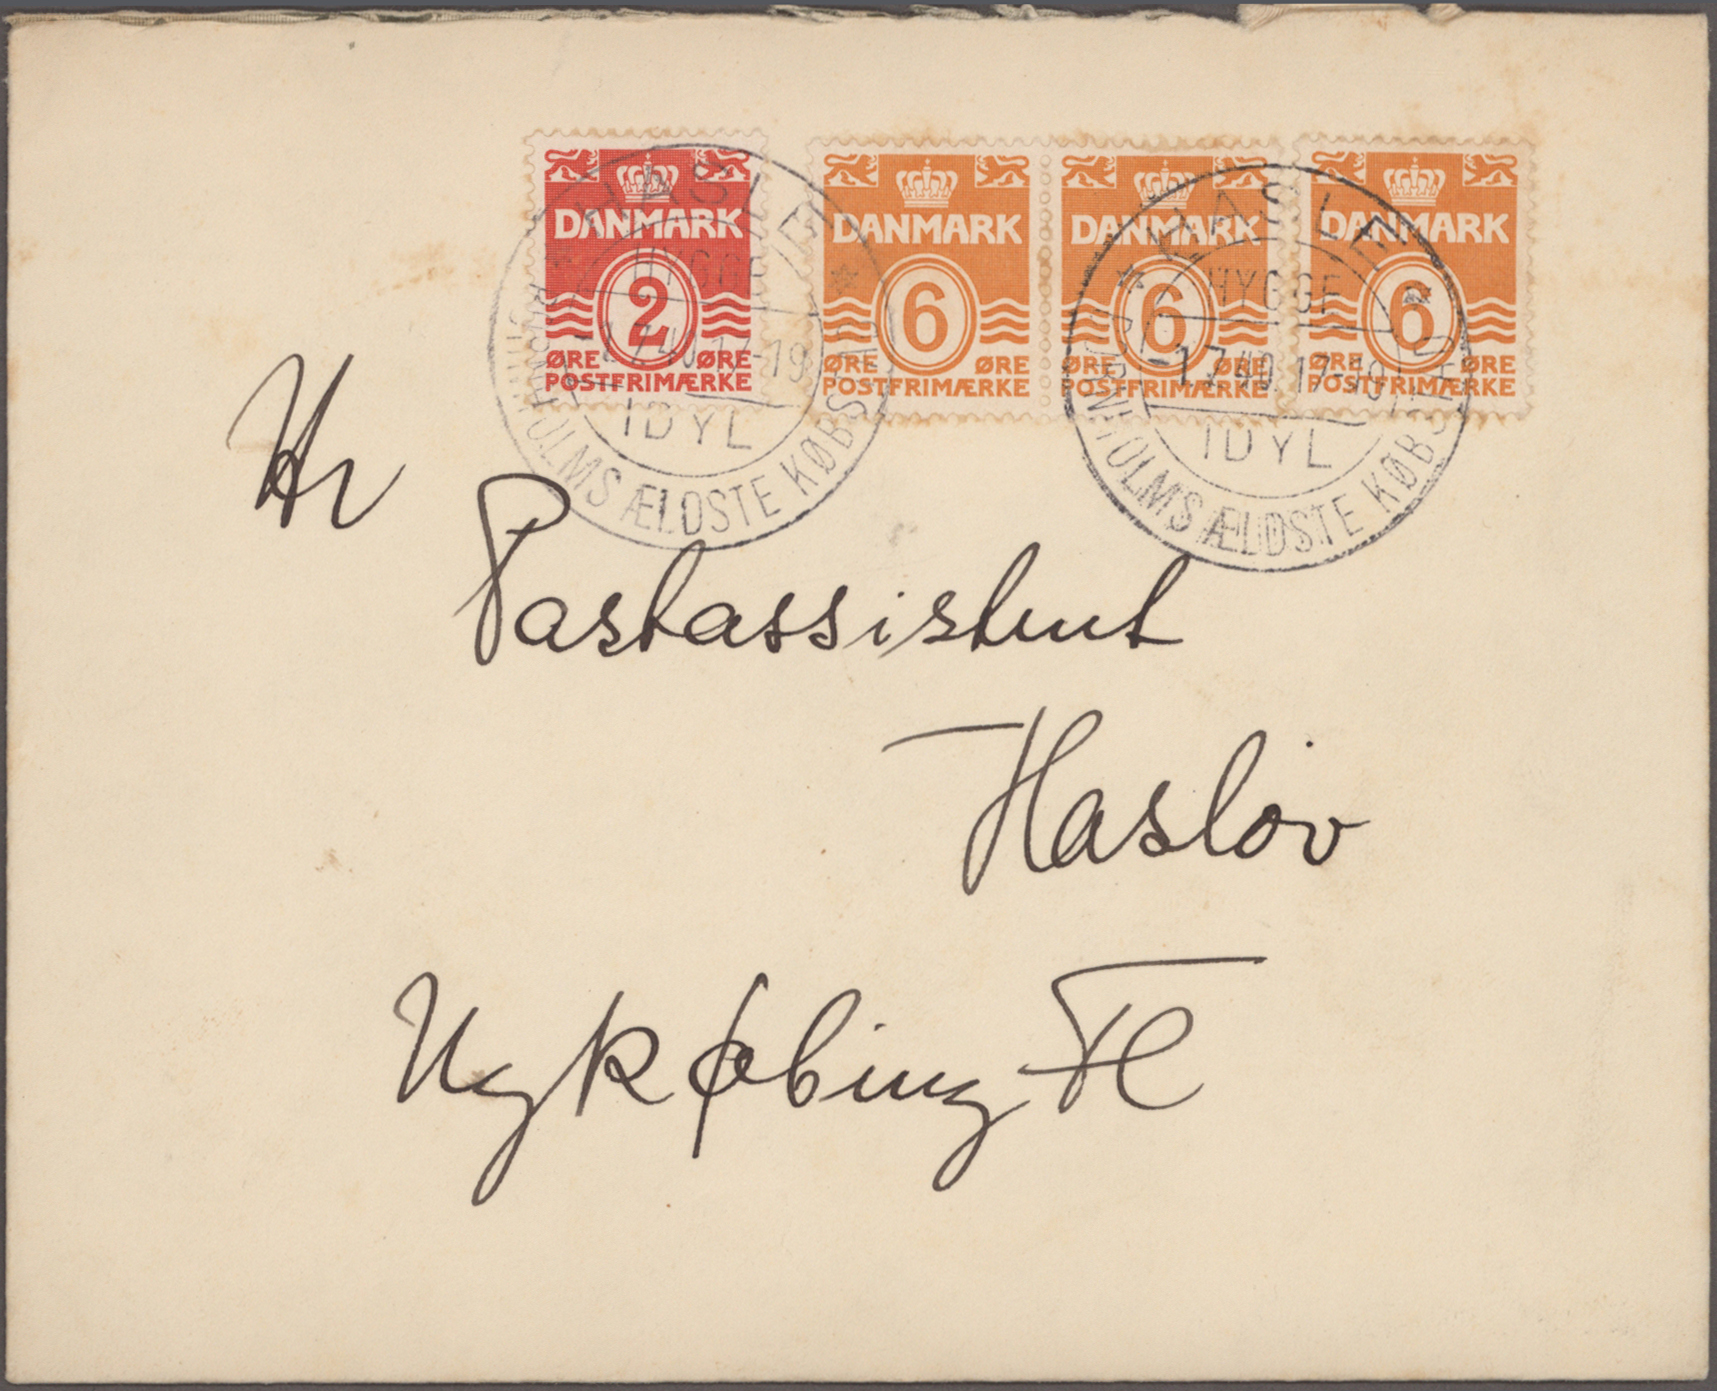 DANMARK
2
ØRE ØRE
POSTFRIMÆRKE
DANMARK
6
ØRE ØRE
POSTFRIMÆRKE
DANMARK
6
ØRE ØRE
POSTFRIMÆRKE
DANMARK
6
ØRE ØRE
POSTFRIMÆRKE
HASLE
HYGGE
17-19
IDYL
HOLMS ÆLDSTE KØBS
HASLE
HYGGE
-1.7.40.17-19
IDYL
HOLMS ÆLDSTE KØBS
Hr
Postassistent
Hasløv
Nykøbing Fl